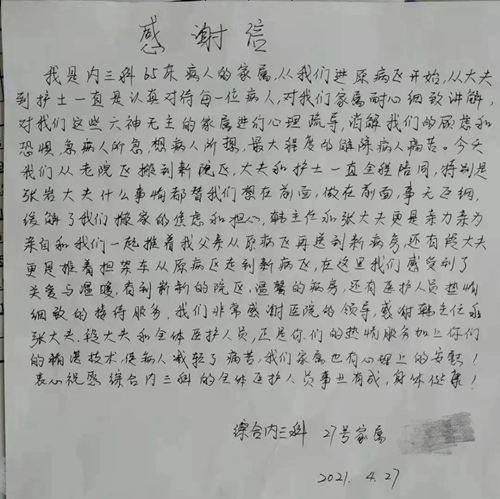 感谢信
我是内三科65床病人的家属,从我们进原病区开始,从大夫
到护士一直是认真对待每一位病人,对我们家属耐心细致讲解,
对我们这些六神无主的家属进行心理疏导,消解我们的顾虑和
恐惧.急病人所急.想病人所想.最大程度的解除病人病苦。今天
我们从老院区搬到新院区,大夫和护士一直全程陪同,特别是
张岩大夫什么事情都替我们想在前面,做在前面,事无巨细,
缓解了我们搬家的焦虑和担心,韩主任和张大夫更是亲力亲为
亲自和我们一起推着我父亲从原病区再送到新病房,还有段大夫
更是推着担架车从原病区走到新病区,在这里我们感受到了
关爱与温暖,看到新新的院区.温馨的病房,还有医护人员热情
细致的接待服务,我们非常感谢医院的领导,感谢韩主任和
张大夫.段大夫和全体医护人员,还是你们的热情服务加上你们
的精湛技术,使病人减轻了病苦,我们家属也有心理上的安慰!
衷心祝愿综合内三科的全体医护人员事业有成,身体健康!
综合内三科 27号家属
2021. 4. 27